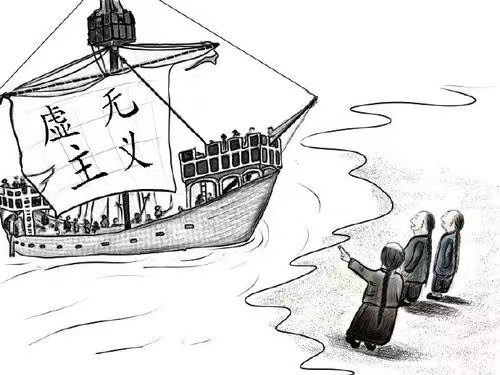 虚无
主义